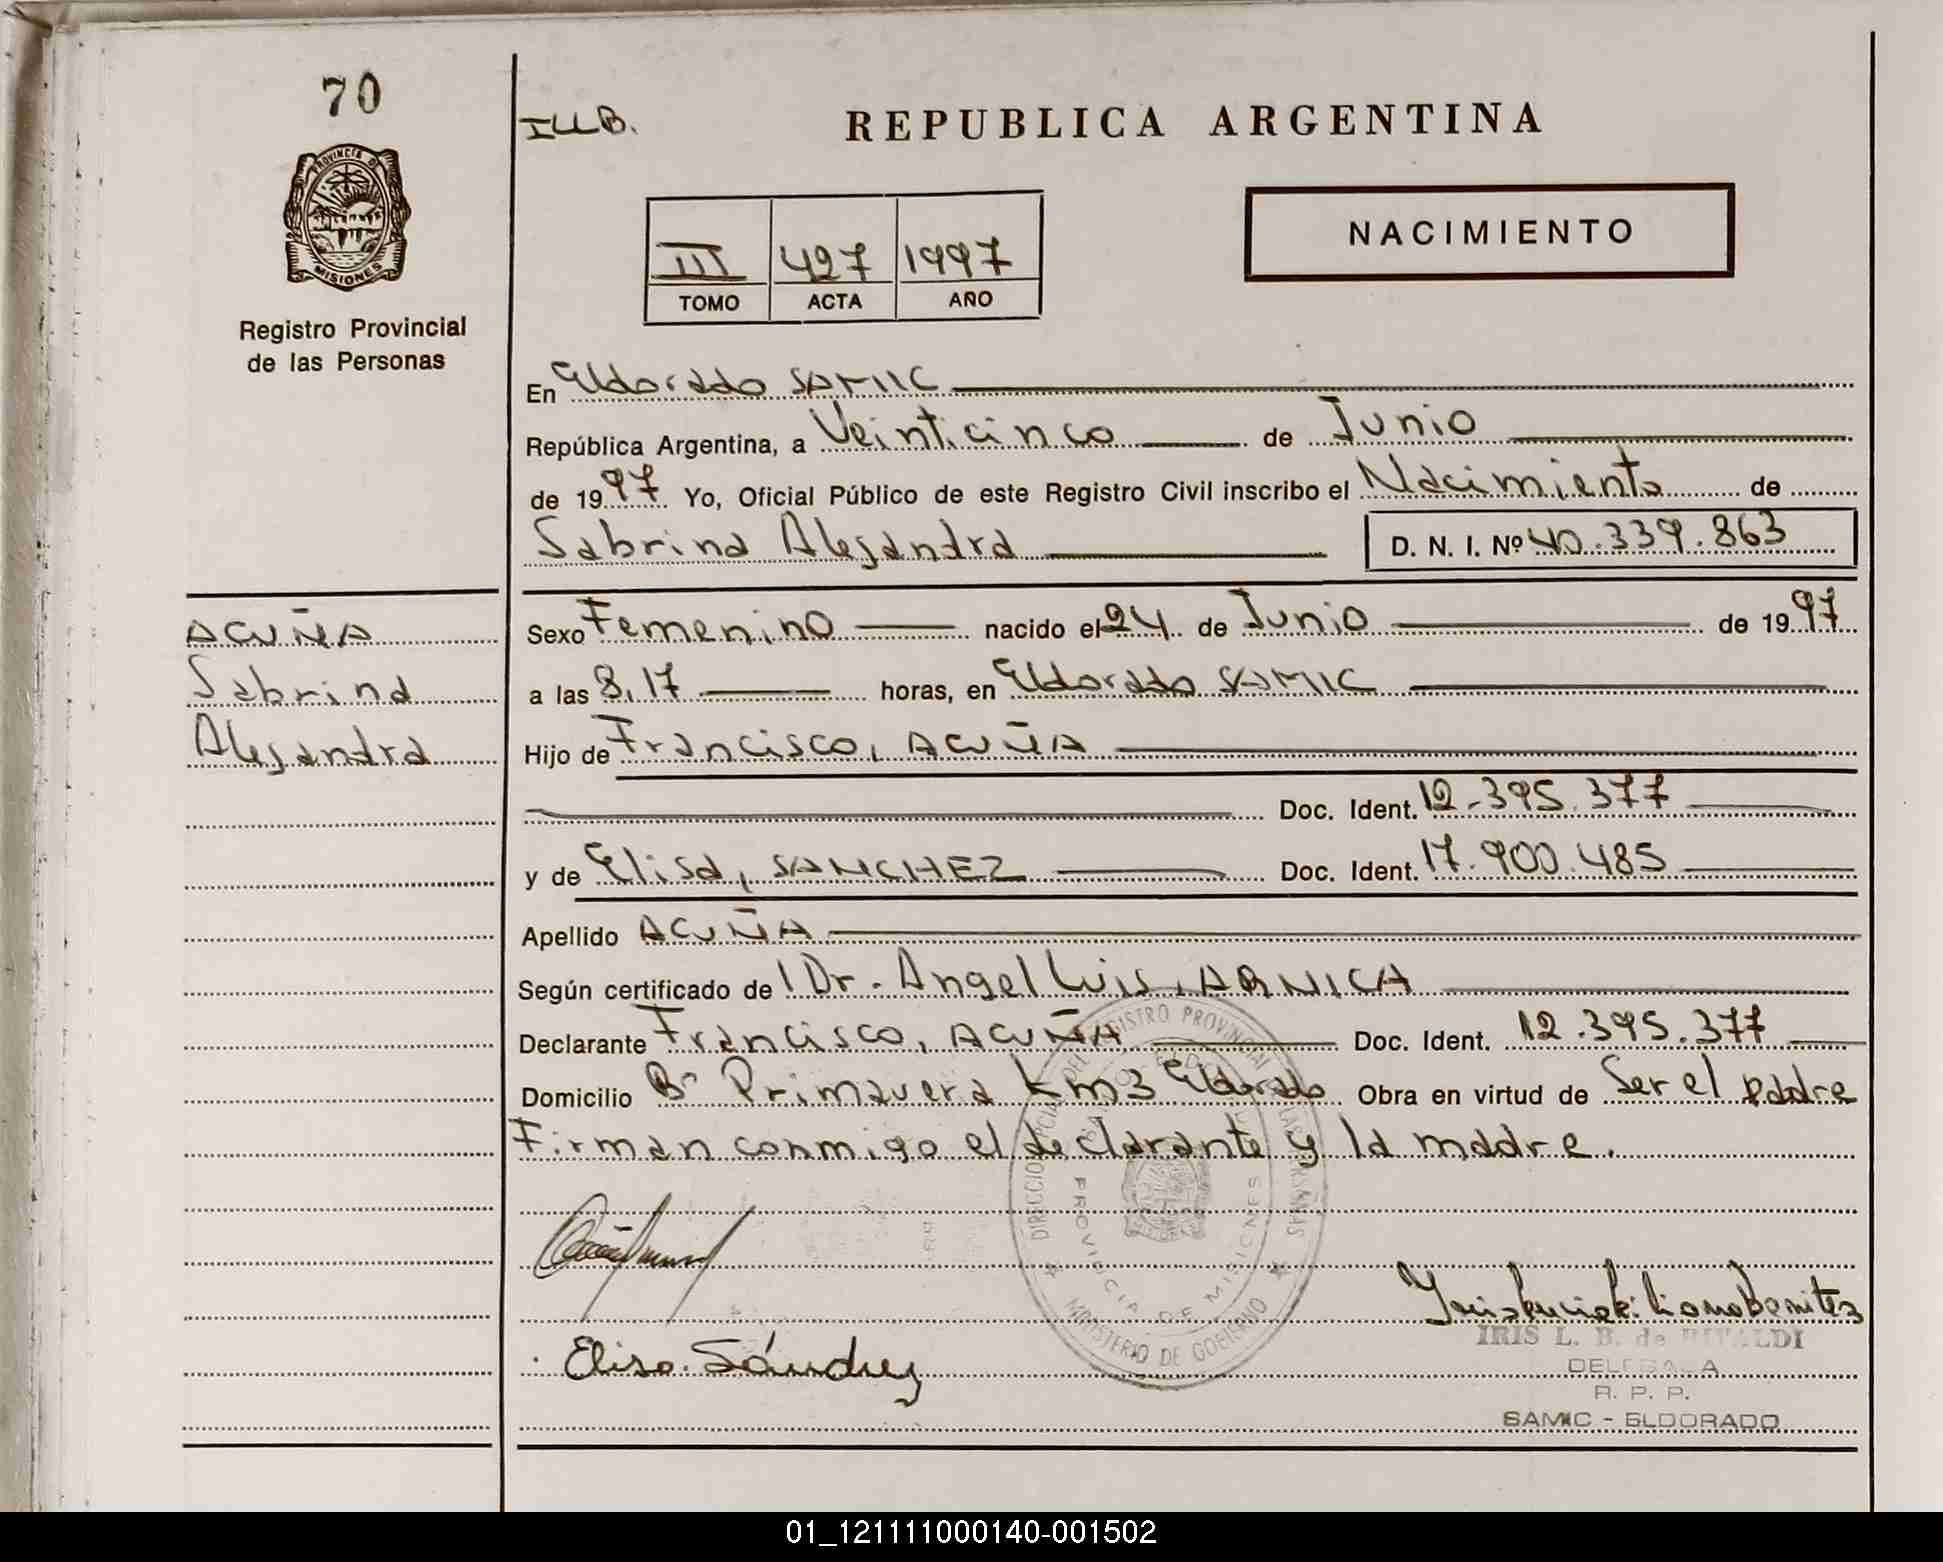 70
ILLB.
REPUBLICA ARGENTINA
PROVINCIA DE
MISIONES
Registro Provincial
de las Personas
NACIMIENTO
III 427 1997
TOMO ACTA AÑO
En Eldorado SAMIC
República Argentina, a Veinticinco de Junio
de 1997 Yo, Oficial Público de este Registro Civil inscribo el Nacimiento de
Sabrina Alejandra D. N. I. Nº 40.339.863
ACUÑA
Sabrina
Alejandra
Sexo Femenino nacido el 24 de Junio de 1997
a las 8,17 horas, en Eldorado SAMIC
Hijo de Francisco, ACUÑA
Doc. Ident. 12.395.377
y de Elisa, SANCHEZ Doc. Ident. 17.900.485
Apellido ACUÑA
Según certificado de l Dr. Angel Luis, ARNICA
Declarante Francisco, ACUÑA Doc. Ident. 12.395.377
Domicilio Bº Primavera Km3 Eldorado Obra en virtud de Ser el padre
Firman conmigo el declarante y la madre.
PROVINCIA DE MISIONES
MINISTERIO DE GOBIERNO
Elisa Sánchez
IRIS L. B. de
DELEGADA
R. P. P.
SAMIC - ELDORADO
01_121111000140-001502